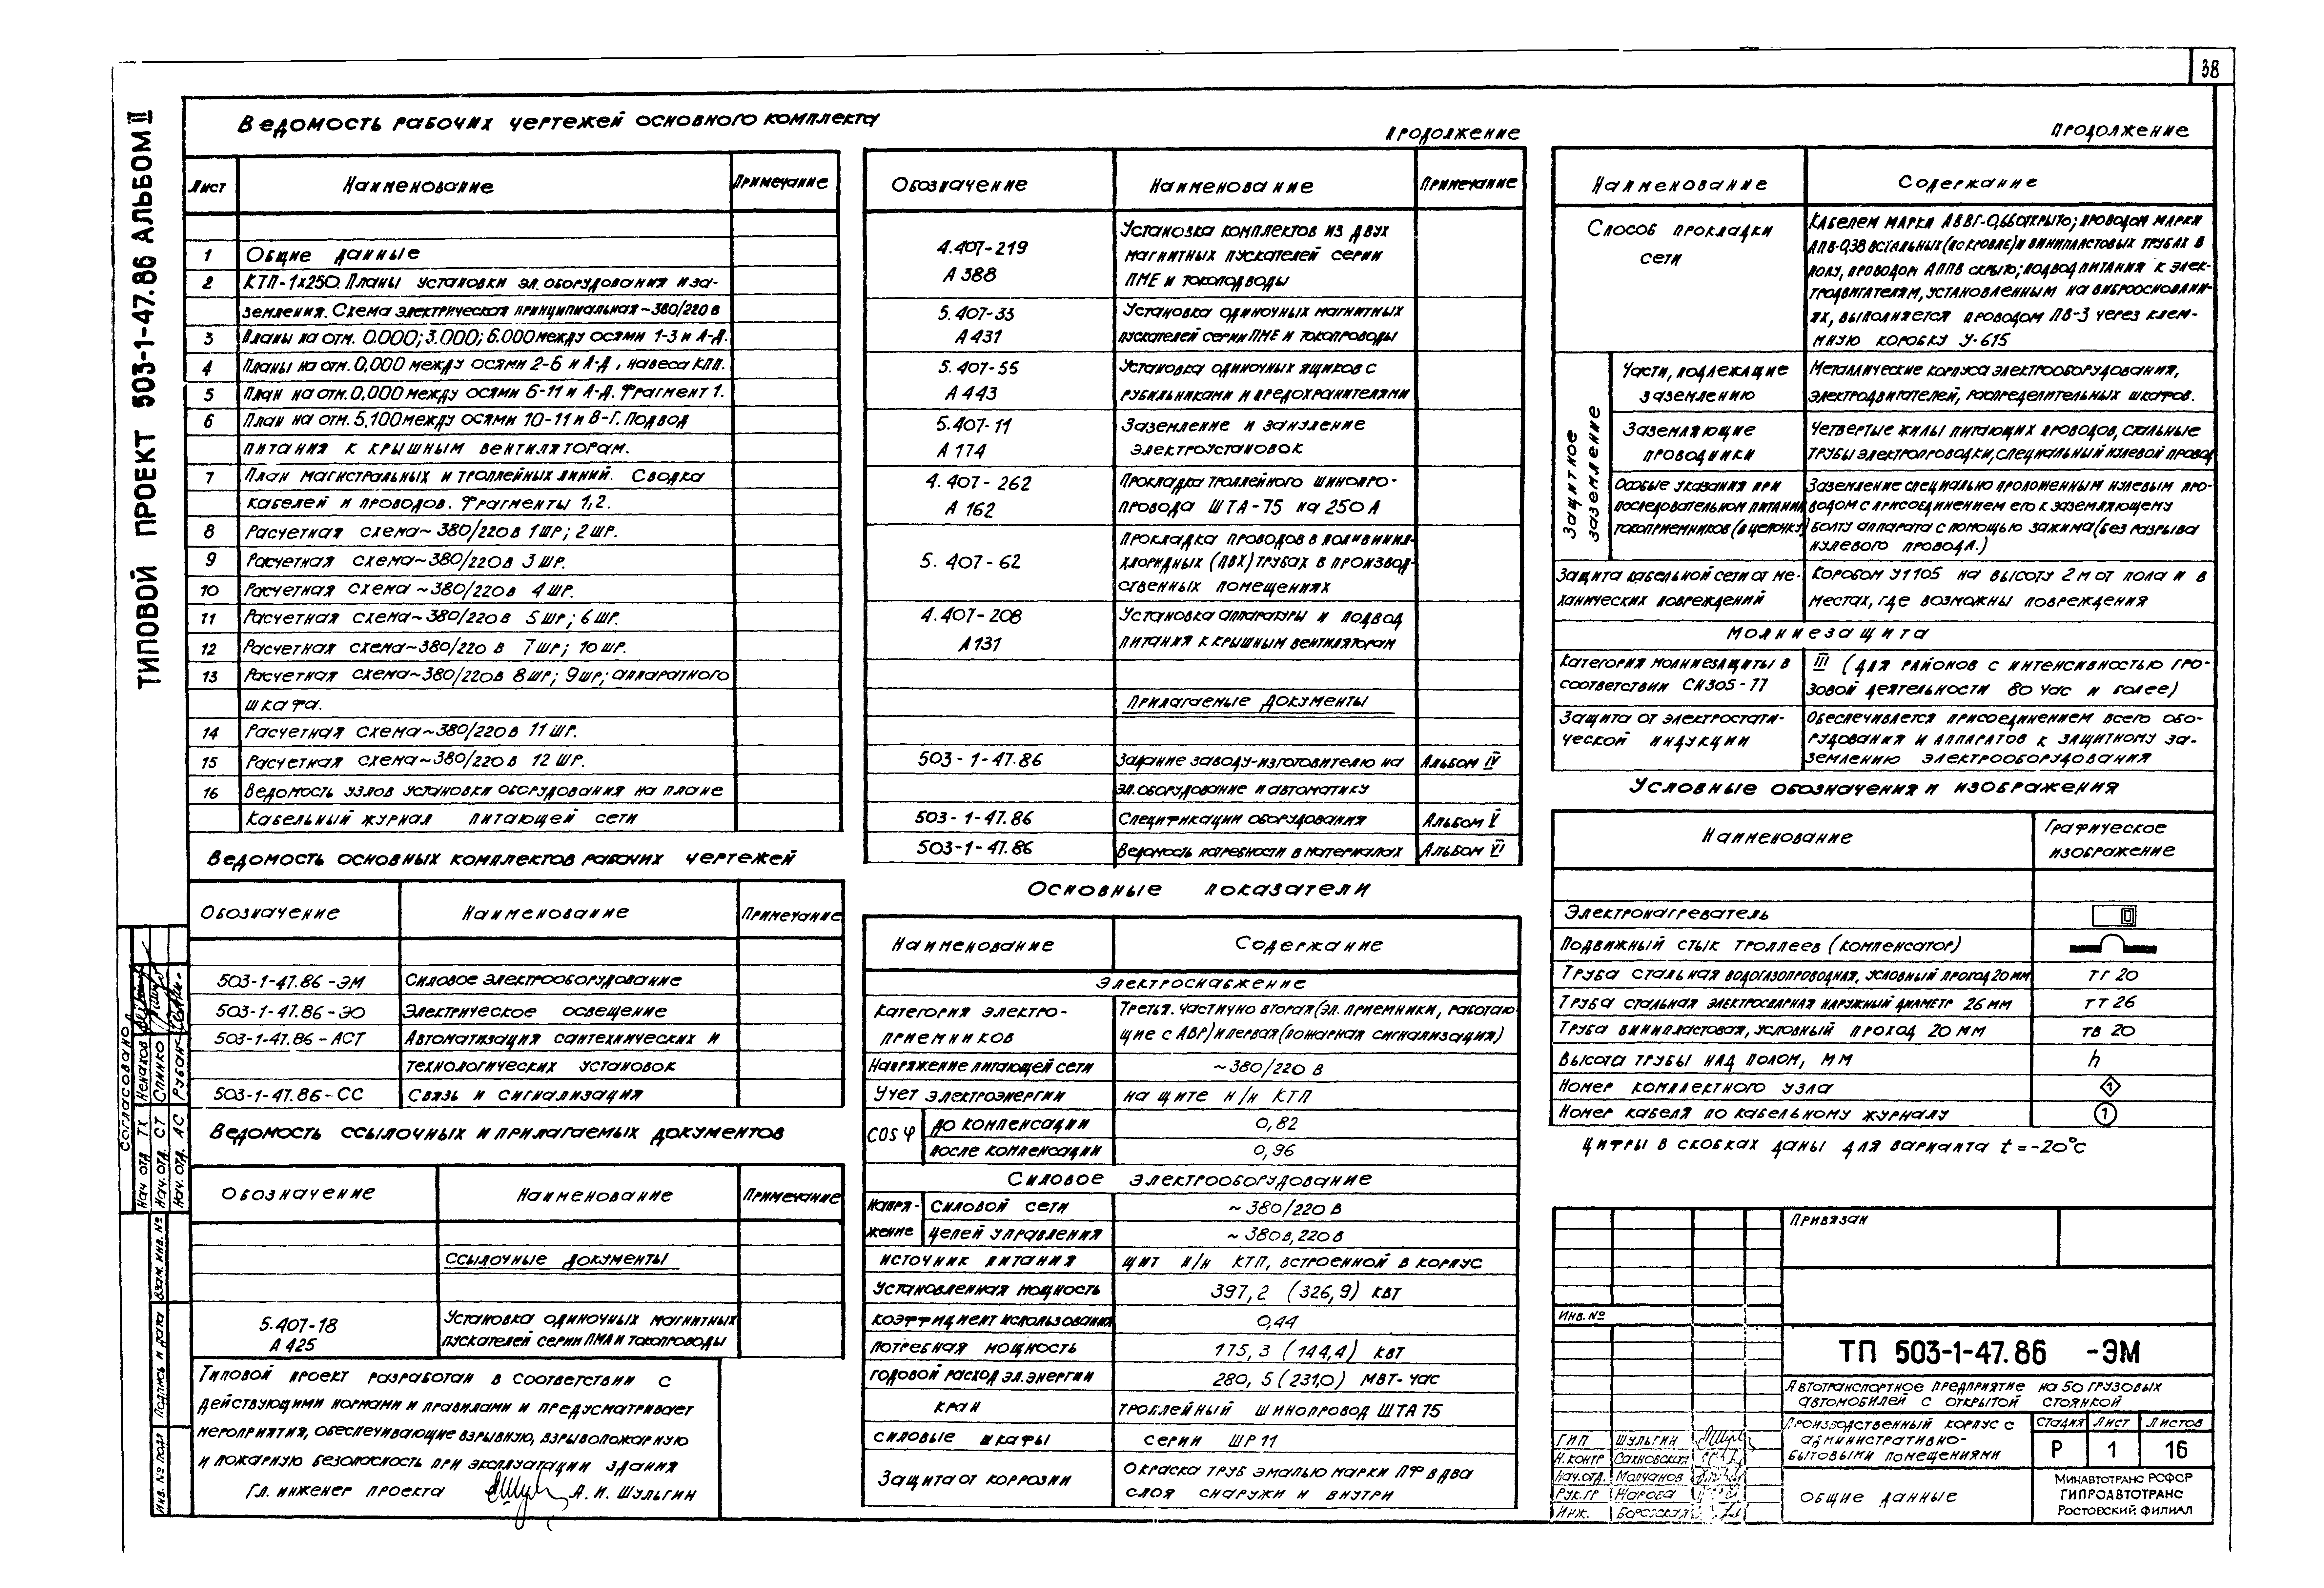 38
ТИПОВОЙ ПРОЕКТ 503-1-47.86 АЛЬБОМ II
Ведомость рабочих чертежей основного комплекта
Лист Наименование Примечание
1 Общие данные
2 КТП-1х250. Планы установки эл. оборудования и за-
земления. Схема электрическая принципиальная ~380/220 в
3 Планы на отм. 0.000; 3.000; 6.000 между осями 1-3 и А-Д.
4 Планы на отм. 0,000 между осями 2-6 и А-Д, навеса КПП.
5 План на отм. 0,000 между осями 6-11 и А-Д. Фрагмент 1.
6 План на отм. 5,100 между осями 10-11 и В-Г. Подвод
питания к крышным вентиляторам.
7 План магистральных и троллейных линий. Сводка
кабелей и проводов. Фрагменты 1,2.
8 Расчетная схема ~ 380/220 в 1 шр; 2 шр.
9 Расчетная схема ~ 380/220 в 3 шр.
10 Расчетная схема ~ 380/220 в 4 шр.
11 Расчетная схема ~ 380/220 в 5 шр; 6 шр.
12 Расчетная схема ~ 380/220 в 7 шр; 10 шр.
13 Расчетная схема ~ 380/220 в 8 шр; 9 шр; аппаратного
шкафа.
14 Расчетная схема ~ 380/220 в 11 шр.
15 Расчетная схема ~ 380/220 в 12 шр.
16 Ведомость узлов установки оборудования на плане
Кабельный журнал питающей сети
Ведомость основных комплектов рабочих чертежей
Обозначение Наименование Примечание
503-1-47.86-ЭМ Силовое электрооборудование
503-1-47.86-ЭО Электрическое освещение
503-1-47.86-АСТ Автоматизация сантехнических и
технологических установок
503-1-47.86-СС Связь и сигнализация
Ведомость ссылочных и прилагаемых документов
Обозначение Наименование Примечание
Ссылочные документы
5.407-18 Установка одиночных магнитных
А 425 пускателей серии ПМА и токопроводы
Типовой проект разработан в соответствии с
действующими нормами и правилами и предусматривает
мероприятия, обеспечивающие взрывную, взрывопожарную
и пожарную безопасность при эксплуатации здания
Гл. инженер проекта А. И. Шульгин
Продолжение
Обозначение Наименование Примечание
4.407-219 Установка комплектов из двух
А 388 магнитных пускателей серии
ПМЕ и токоподводы
5.407-33 Установка одиночных магнитных
А 431 пускателей серии ПМЕ и токопроводы
5.407-55 Установка одиночных ящиков с
А 443 рубильниками и предохранителями
5.407-11 Заземление и зануление
А 174 электроустановок
4.407-262 Прокладка троллейного шинопро-
А 162 провода ШТА-75 на 250 А
5.407-62 Прокладка проводов в поливинил-
хлоридных (ПВХ) трубах в производ-
ственных помещениях
4.407-208 Установка аппаратуры и подвод
А 131 питания к крышным вентиляторам
Прилагаемые документы
503-1-47.86 Задание заводу-изготовителю на Альбом IV
эл. оборудование и автоматику
503-1-47.86 Спецификации оборудования Альбом V
503-1-47.86 Ведомость потребности в материалах Альбом VI
Основные показатели
Наименование Содержание
Электроснабжение
Категория электро-
приемников
Третья. частично вторая (эл. приемники, работаю-
щие с АВР) и первая (пожарная сигнализация)
Напряжение питающей сети ~ 380/220 в
Учет электроэнергии на щите н/н КТП
COS φ до компенсации 0,82
после компенсации 0,96
Силовое электрооборудование
Напря- силовой сети ~ 380/220 в
жение цепей управления ~ 380в, 220в
источник питания щит н/н КТП, встроенной в корпус
Установленная мощность 397,2 (326,9) квт
коэффициент использования 0,44
потребная мощность 175,3 (144,4) квт
годовой расход эл. энергии 280,5 (231,0) МВт-час
кран троллейный шинопровод ШТА 75
силовые шкафы серии ШР 11
Защита от коррозии
Окраска труб эмалью марки ПФ в два
слоя снаружи и внутри
Продолжение
Наименование Содержание
Способ прокладки
сети
Кабелем марки АВВГ-0,66 открыто; проводом марки
АПВ-0,38 в стальных (по кровле) и винипластовых трубах в
полу, проводом АППВ скрыто; подвод питания к элек-
тродвигателям, установленным на виброоснован-
ях, выполняется проводом ПВ-3 через клем-
мную коробку У-615
Защитное заземление
Части, подлежащие
заземлению
Металлические корпуса электрооборудования,
электродвигателей, распределительных шкафов.
Заземляющие
проводники
Четвертые жилы питающих проводов, стальные
трубы электропроводки, специальный нулевой провод
Особые указания при
последовательном питании
токоприемников (в цепочку)
Заземление специально проложенным нулевым про-
водом с присоединением его к заземляющему
болту аппарата с помощью зажима (без разрыва
нулевого провода.)
Защита кабельной сети от ме-
ханических повреждений
Коробом У1105 на высоту 2 м от пола и в
местах, где возможны повреждения
Молниезащита
Категория молниезащиты в
соответствии СН305-77
III (для районов с интенсивностью гро-
зовой деятельности 80 час и более)
Защита от электростати-
ческой индукции
Обеспечивается присоединением всего обо-
рудования и аппаратов к защитному за-
землению электрооборудования
Условные обозначения и изображения
Наименование Графическое
изображение
Электронагреватель
Подвижный стык троллеев (компенсатор)
Труба стальная водогазопроводная, условный проход 20 мм тг 20
Труба стальная электросварная наружный диаметр 26 мм тт 26
Труба винипластовая, условный проход 20 мм тв 20
Высота трубы над полом, мм h
Номер комплектного узла 1
Номер кабеля по кабельному журналу 1
Цифры в скобках даны для варианта t = -20°С
Привязан
Инв. №
ТП 503-1-47.86 -ЭМ
Автотранспортное предприятие на 50 грузовых
автомобилей с открытой стоянкой
Производственный корпус с
административно-
бытовыми помещениями
Стадия Лист Листов
Р 1 16
Общие данные
Минавтотранс РСФСР
ГИПРОАВТОТРАНС
Ростовский филиал
ГИП Шульгин
Н.контр Сахновский
Нач.отд. Молчанов
Рук.гр Нарова
Инж.
Согласовано
Нач отд ТХ Ненахов
Нач. отд. СТ Слинко
Нач. отд. АС Рубан
Взам. инв. №
Подпись и дата
Инв. № подл